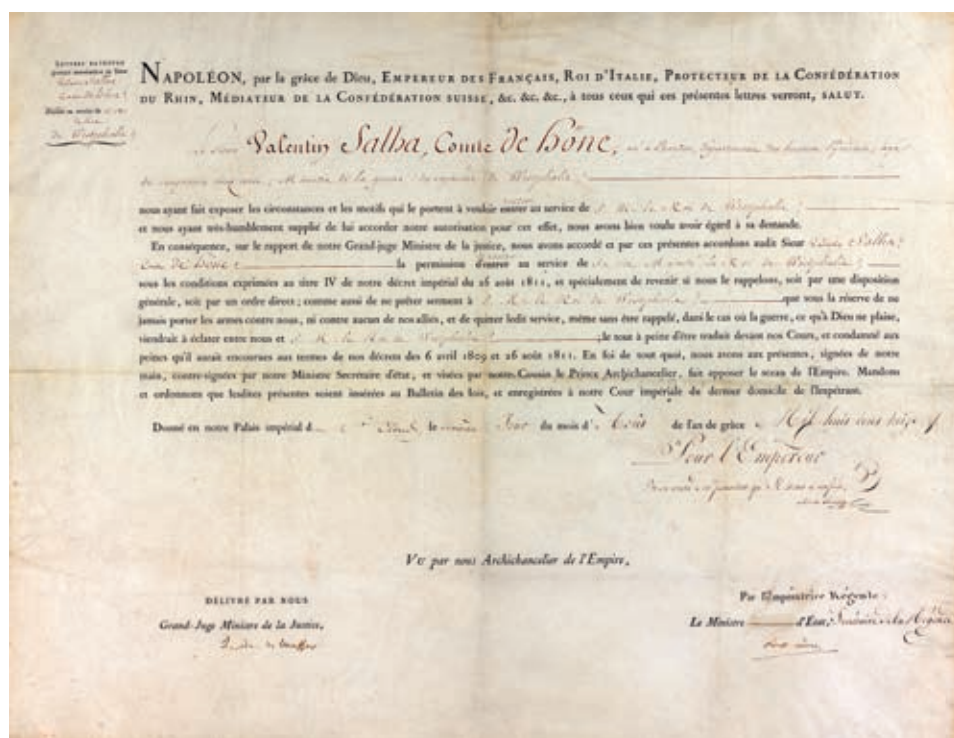 LETTRES PATENTES
NAPOLÉON, par la grâce de Dieu, EMPEREUR DES FRANÇAIS, ROI D'ITALIE, PROTECTEUR DE LA CONFÉDÉRATION
DU RHIN, MÉDIATEUR DE LA CONFÉDÉRATION SUISSE, &c. &c. &c., à tous ceux qui ces présentes lettres verront, SALUT.
Valentin Salha, Comte de höne,
de Westphalie
nous ayant fait exposer les circonstances et les motifs qui le portent à vouloir entrer au service de S. M. le Roi de Westphalie
et nous ayant très-humblement supplié de lui accorder notre autorisation pour cet effet, nous avons bien voulu avoir égard à sa demande.
En conséquence, sur le rapport de notre Grand-juge Ministre de la justice, nous avons accordé et par ces présentes accordons audit Sieur Salha
Comte de höne la permission d'entrer au service de Sa Majesté le Roi de Westphalie
sous les conditions exprimées au titre IV de notre décret impérial du 26 août 1811, et spécialement de revenir si nous le rappelons, soit par une disposition
générale, soit par un ordre direct; comme aussi de ne prêter serment à S. M. le Roi de Westphalie que sous la réserve de ne
jamais porter les armes contre nous, ni contre aucun de nos alliés, et de quitter ledit service, même sans être rappelé, dans le cas où la guerre, ce qu'à Dieu ne plaise,
viendrait à éclater entre nous et S. M. le Roi de Westphalie ; le tout à peine d'être traduit devant nos Cours, et condamné aux
peines qu'il aurait encourues aux termes de nos décrets des 6 avril 1809 et 26 août 1811. En foi de tout quoi, nous avons aux présentes, signées de notre
main, contre-signées par notre Ministre Secrétaire d'état, et visées par notre Cousin le Prince Archichancelier, fait apposer le sceau de l'Empire. Mandons
et ordonnons que lesdites présentes soient insérées au Bulletin des lois, et enregistrées à notre Cour impériale du dernier domicile de l'impétrant.
Donné en notre Palais impérial de St Cloud, le Jour du mois d'Août de l'an de grâce Mil huit cent treize
Pour l'Empereur
VU par nous Archichancelier de l'Empire,
DÉLIVRÉ PAR NOUS
Grand-Juge Ministre de la Justice,
Par l'Impératrice Régente:
Le Ministre d'État, Secrétaire de la Régence